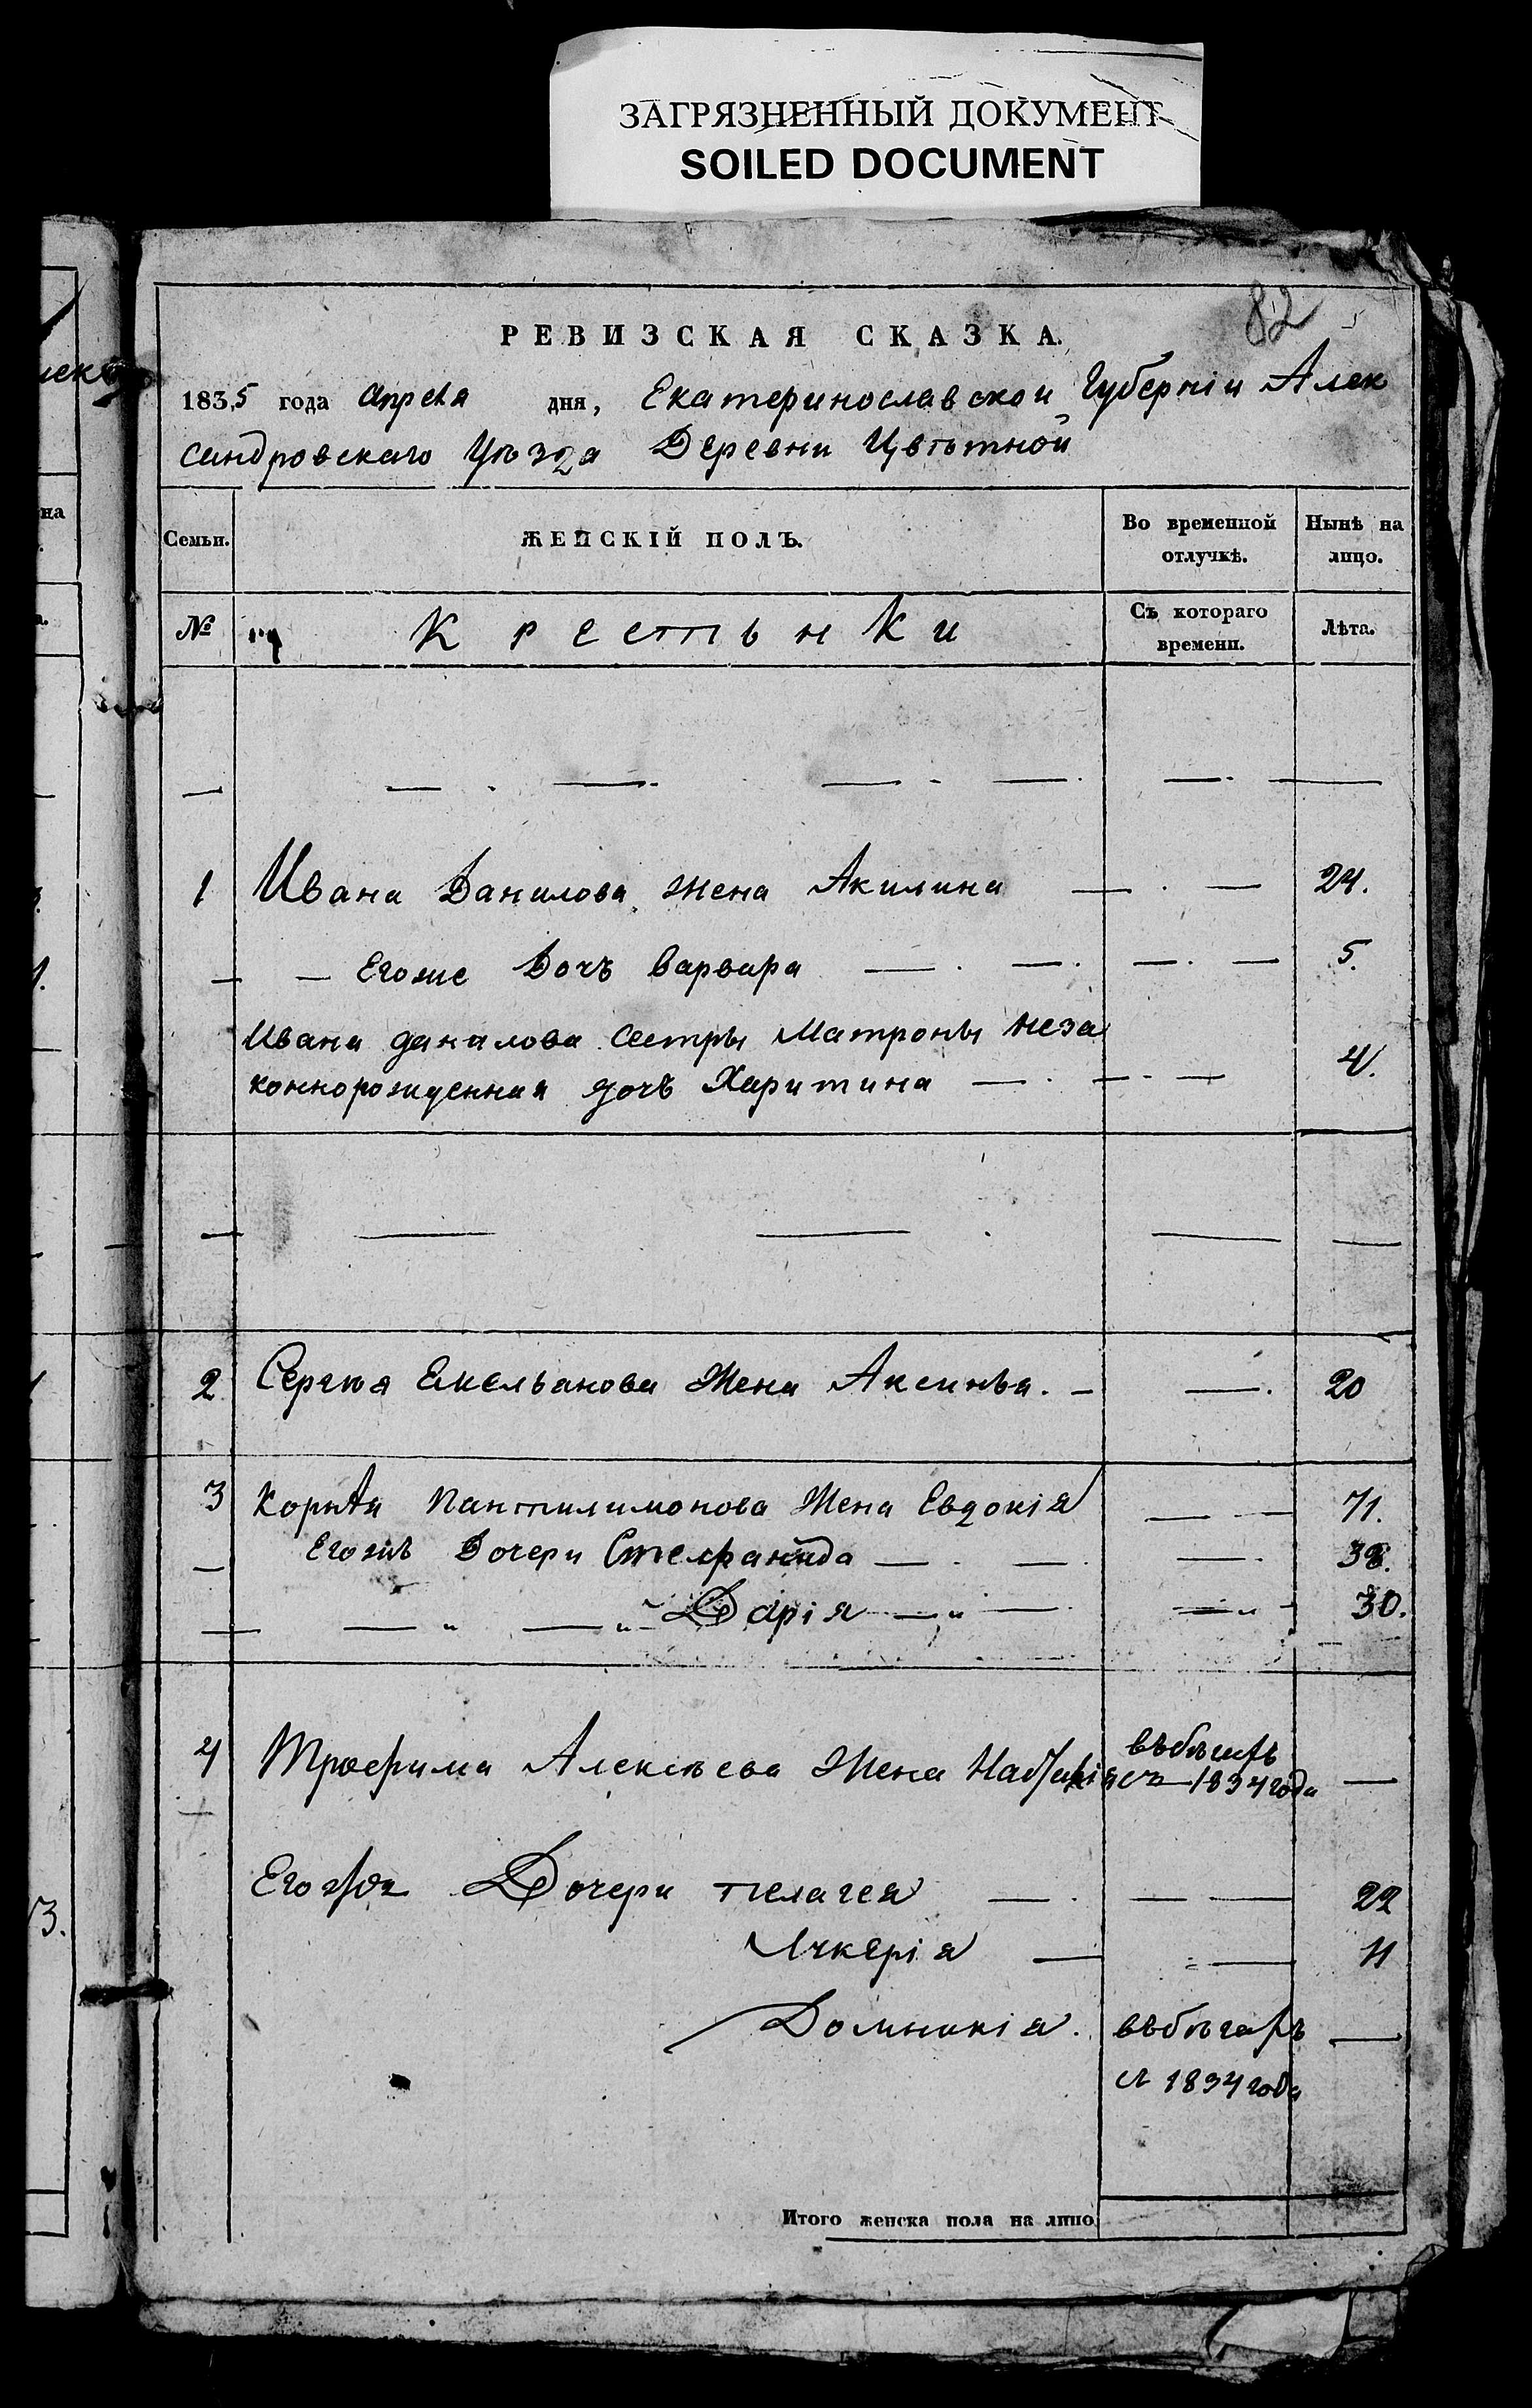 ЗАГРЯЗНЕННЫЙ ДОКУМЕНТ
SOILED DOCUMENT
82
РЕВИЗСКАЯ СКАЗКА.
1835 года Апреля дня, Екатеринославской Губерніи Алек
сандровскаго Уѣзда Деревни Цвѣтной
Семьи.
ЖЕНСКІЙ ПОЛЪ.
Во временной отлучкѣ.
Нынѣ на лицо.
№
Крестьнки
Съ котораго времени.
Лѣта.
1 Ивана Данилова Жена Акилина 24.
Егоже Дочъ Варвара 5.
Ивана данилова Сестры Матроны Неза
коннорожденная дочъ Харитина 4.
2 Сергѣя Емельванова Жена Аксинья. 20
3 Корнѣя Пантилимонова Жена Евдокія 71.
Егожъ Дочери Стефанида 38.
Дарія 30.
4 Трофима Алексѣева Жена въбѣгахъ
съ 1834 года
Егожъ Дочери пелагея 22
11
Домникія. въбѣгахъ
съ 1834 года
Итого женска пола на лицо